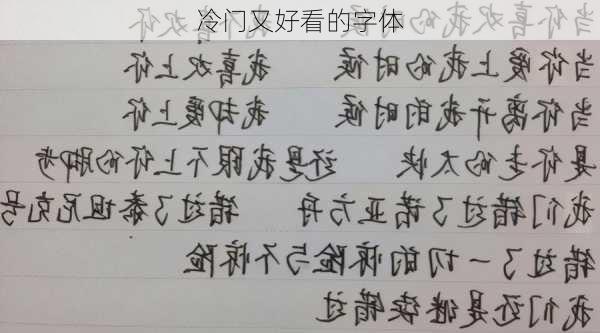 冷门又好看的字体
当你喜欢我的时候 我不喜欢你
当你爱上我的时候 我喜欢上你
当你离开我的时候 我却爱上你
是你走的太快 还是我跟不上你的脚步
我们错过了诺亚方舟 错过了泰坦尼克号
错过了一切的惊险与不惊险
我们还是继续错过